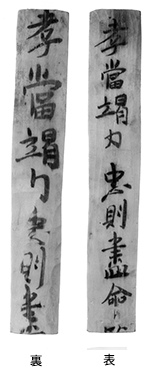 孝當竭力忠則盡命
孝當竭力忠則盡
表
裏